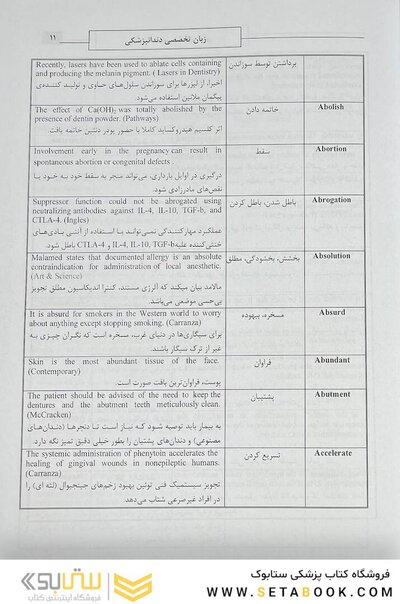 زبان تخصصی دندانپزشکی
۱۱
Recently, lasers have been used to ablate cells containing
and producing the melanin pigment. ( Lasers in Dentistry)
اخیرا، از لیزرها برای سوزاندن سلول‌های حاوی و تولیـد کننـده‌ی
پیگمان ملانین استفاده می‌شود.
برداشتن توسط سوزاندن
The effect of Ca(OH)₂ was totally abolished by the
presence of dentin powder. (Pathways)
اثر کلسیم هیدروکساید کاملا با حضور پودر دنتین خاتمه یافت.
خاتمه دادن
Abolish
Involvement early in the pregnancy can result in
spontaneous abortion or congenital defects .
درگیری در اوایل بارداری، می‌تواند منجر به سقط خود به خـود یـا
نقص‌های مادرزادی شود.
سقط
Abortion
Suppressor function could not be abrogated using
neutralizing antibodies against IL-4, IL-10, TGF-b, and
CTLA-4. (Ingles)
عملکرد مهارکننـدگی نمـی‌توانـد بـا اسـتفاده از آنتـی بـادی‌هـای
خنثی‌کننده علیه IL-4, IL-10, TGF-b و CTLA-4 باطل شود.
باطل شدن، باطل کردن
Abrogation
Malamed states that documented allergy is an absolute
contraindication for administration of local anesthetic.
(Art & Science)
مالامد بیان میکند که آلرژی مستند، کنترا اندیکاسیون مطلق تجویز
بی‌حسی موضعی می‌باشد.
بخشش، بخشودگی، مطلق
Absolution
It is absurd for smokers in the Western world to worry
about anything except stopping smoking. (Carranza)
برای سیگاری‌ها در دنیای غرب، مسخره است که نگـران چیـزی بـه
غیر از ترک سیگار باشند.
مسخره، بیهوده
Absurd
Skin is the most abundant tissue of the face.
(Contemporary)
پوست، فراوان‌ترین بافت صورت است.
فراوان
Abundant
The patient should be advised of the need to keep the
dentures and the abutment teeth meticulously clean.
(McCracken)
به بیمار باید توصیه شـود کـه نیـاز اسـت تـا دنچرهـا (دنـدان‌هـای
مصنوعی) و دندان‌های پشتیبان را بطور خیلی دقیق تمیز نگه دارد.
پشتیبان
Abutment
The systemic administration of phenytoin accelerates the
healing of gingival wounds in nonepileptic humans.
(Carranza)
تجویز سیستمیک فنی توئین بهبود زخم‌های جینجیوال (لثه ای) را
در افراد غیرصرعی شتاب می‌دهد.
تسریع کردن
Accelerate
فروشگاه کتاب پزشکی ستابوک
WWW.SETABOOK.COM
ستابوک
فروشگاه اینترنتی کتاب